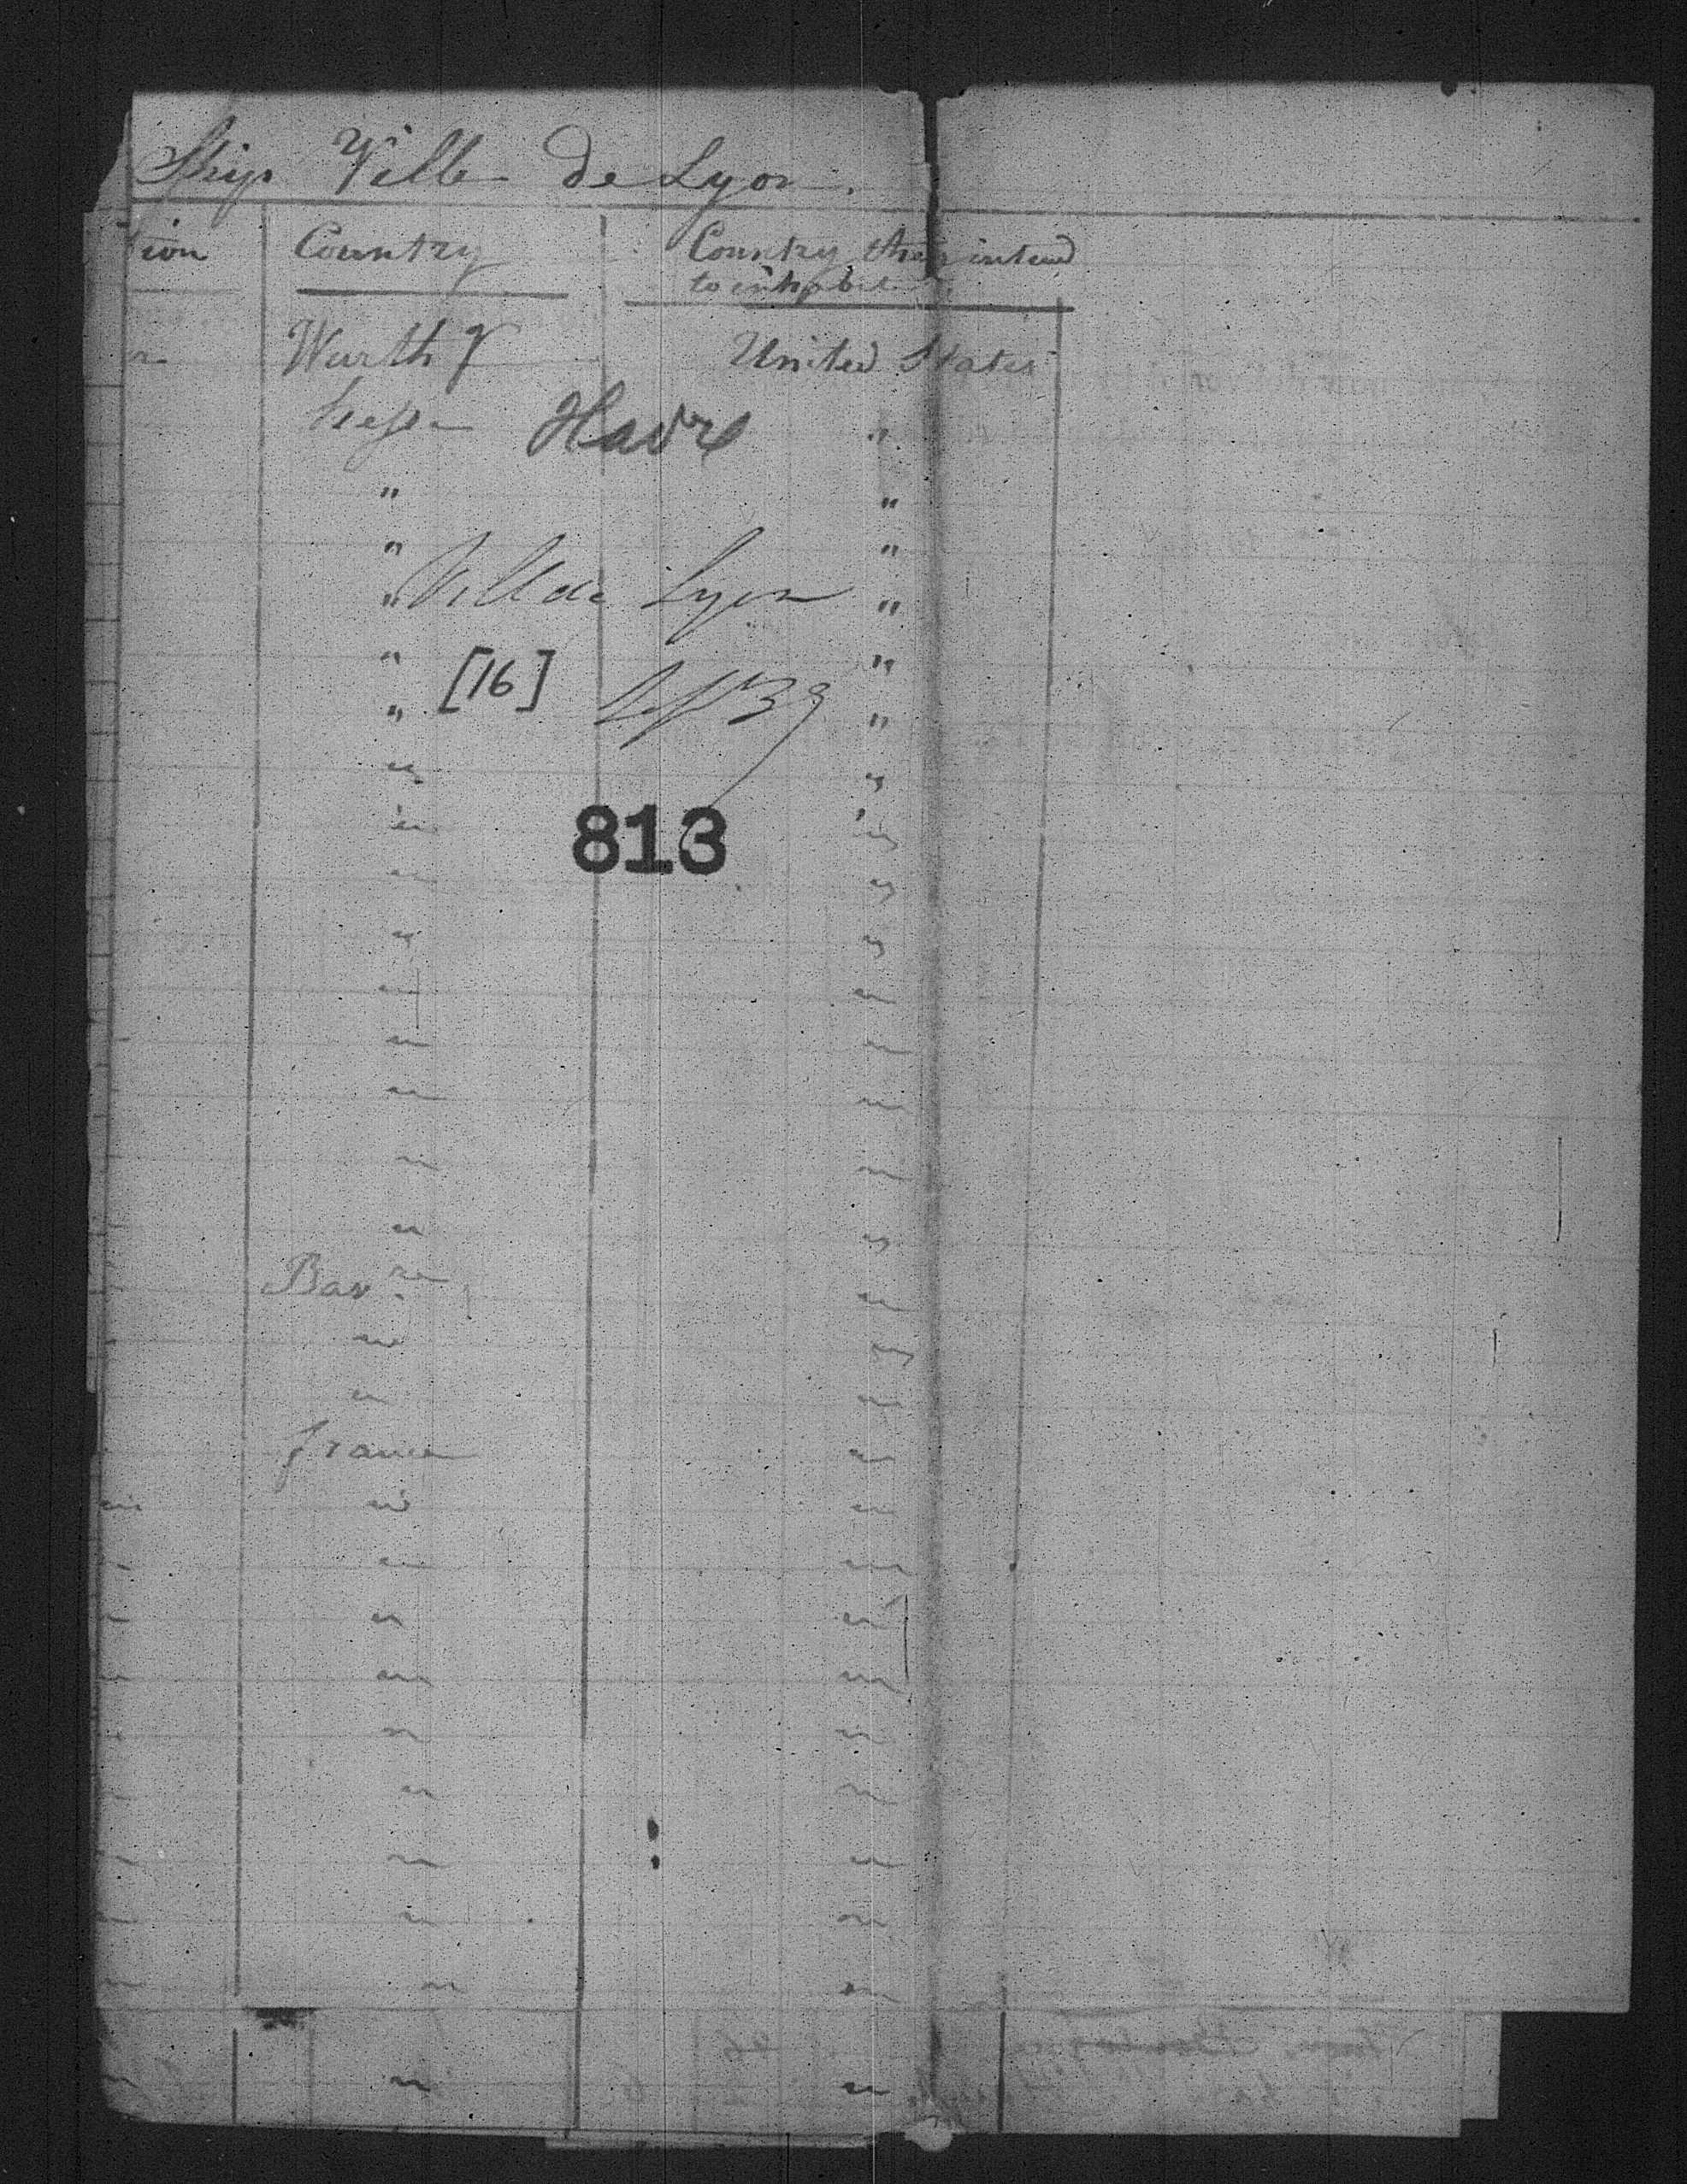 Ship Ville De Lyon.
tion Country Country they intend
to inhabit
Wurthg United States
hesse Havre "
" "
" "
" Ville de Lyon "
" "
[16]
" "
" "
813
" "
" "
" "
" "
" "
" "
" "
" "
Bavre "
" "
" "
france "
" " "
" "
" "
" "
" "
" "
" "
" "
" "
" "